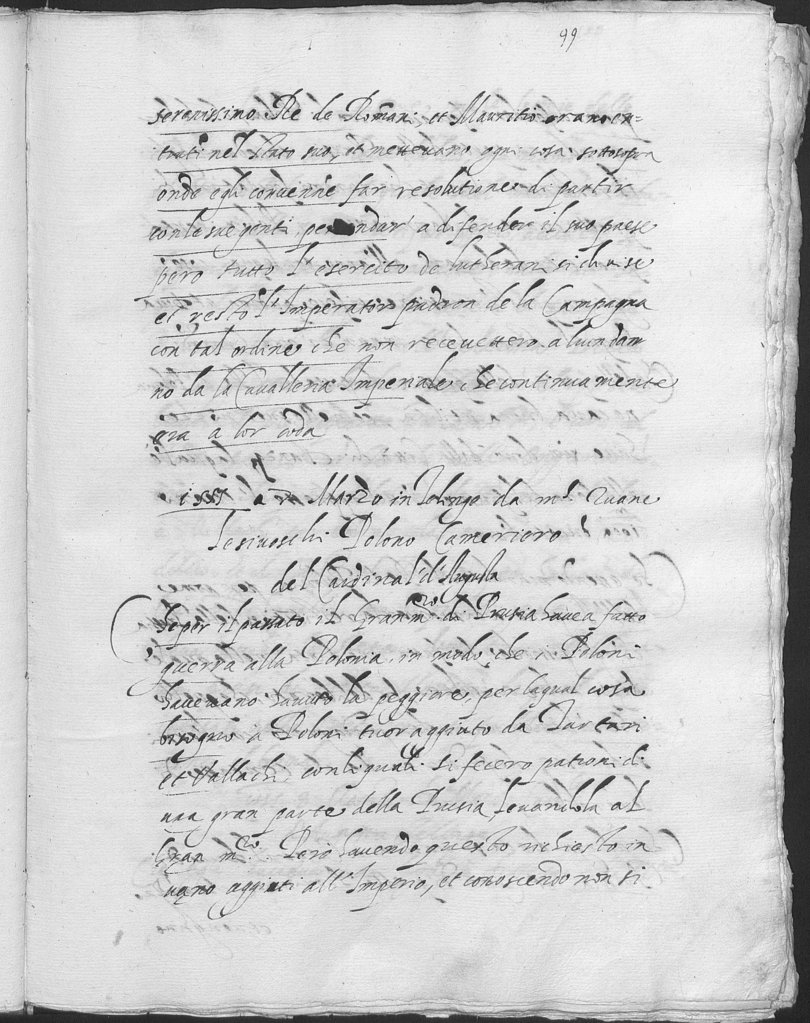 99
serenissimo Re de Romani, et Mauritio erano en=
trati nel stato suo, et mettevano ogni cosa sottosopra
onde egli convenne far resolutione di partir
con le sue genti per andar a difender il suo paese
pero tutto l'esercito de lutherani si divise
et resto l'Imperator padron de la Campagna
con tal ordine che non recevettero alcun dan
no da la Cavalleria Imperiale che continuamente
era a lor coda
1557 a Marzo in da m.r Zuane
Polono Cameriero
del Cardinal d'Augusta
Che per il passato il Gran m.ro di Prusia havea fatto
guerra alla Polonia, in modo che i Poloni
havevano havuto la peggiore, per laqual cosa
bisogno a Poloni tuor aggiuto da Tartari
et Vallachi, con li quali si fecero patroni di
una gran parte della Prusia levandola al
Gran m.ro. Però havendo questo richiesto in
vano aggiuti all'Imperio, et conoscendo non si